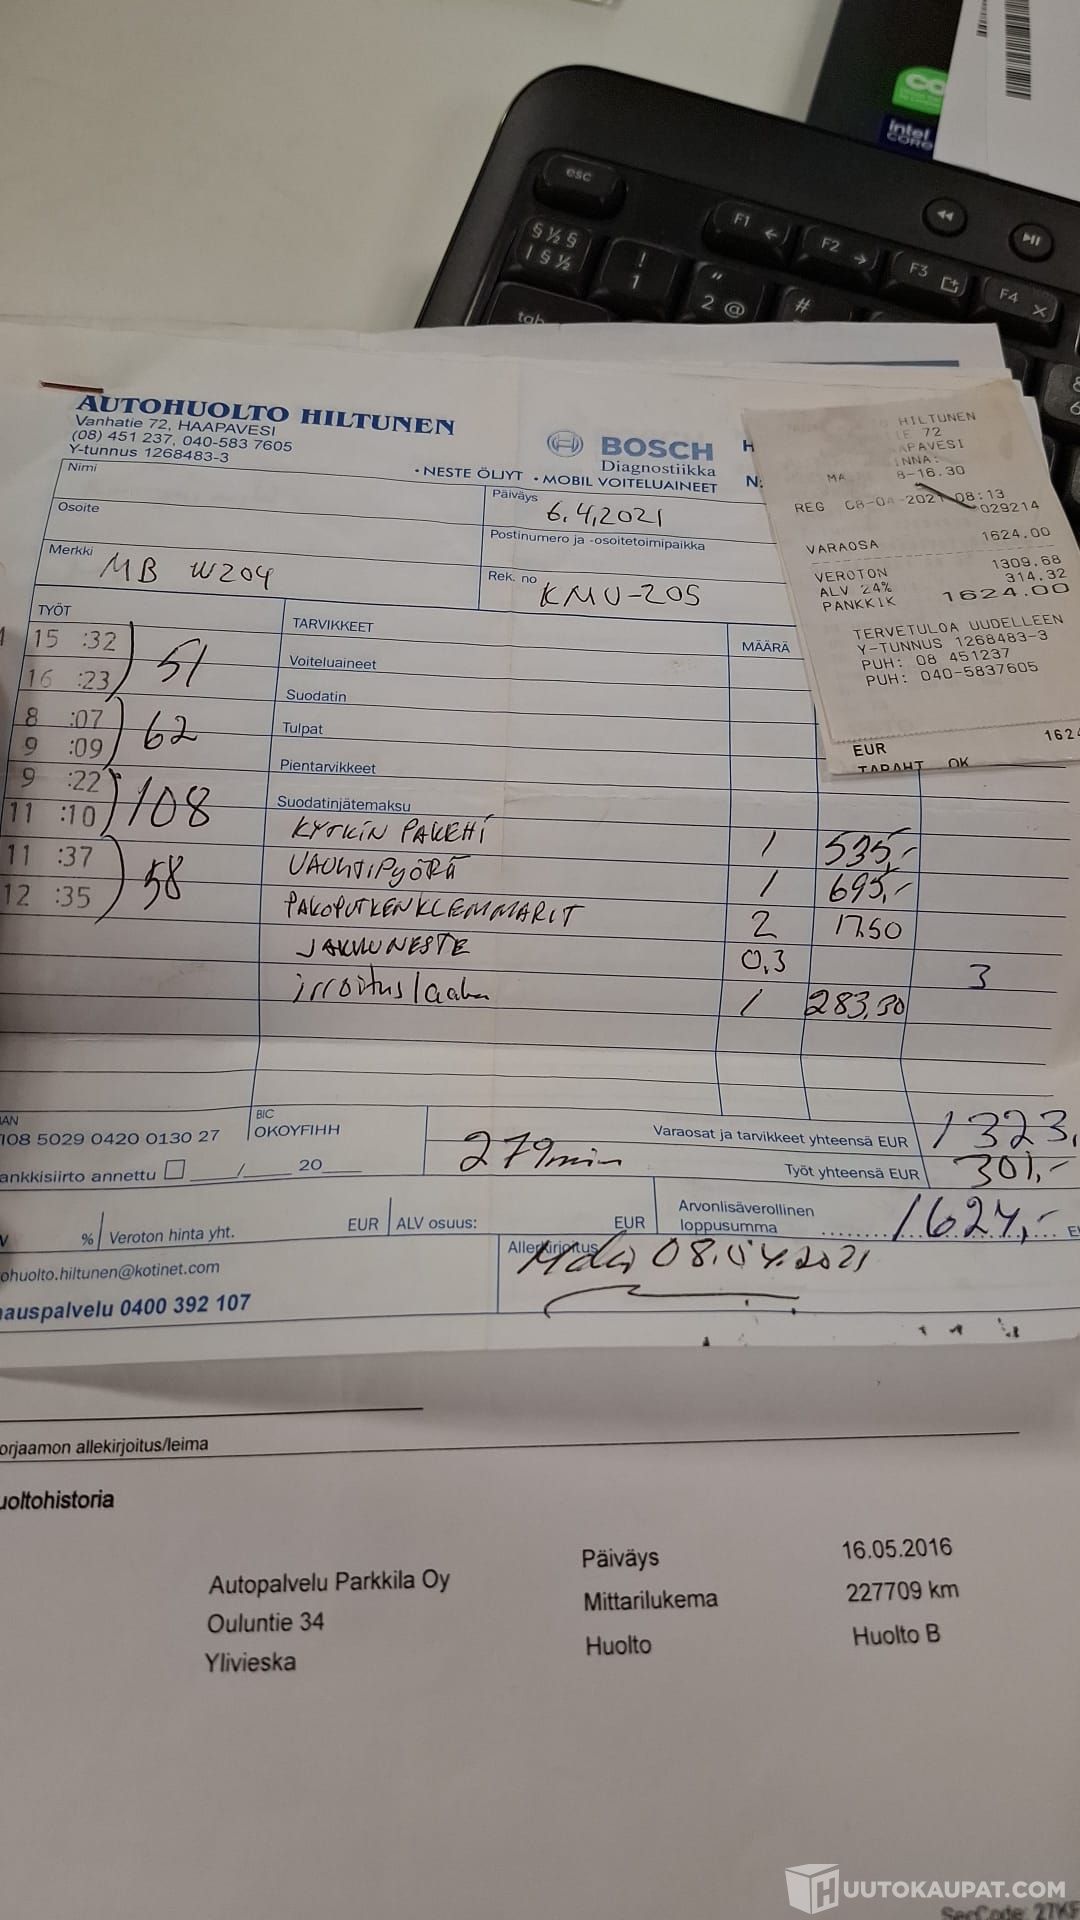 CO
intel
CORE
esc
F1
F2
F3
F4
§ ½ §
| § ½
!
1
"
2 @
#
tab
AUTOHUOLTO HILTUNEN
Vanhatie 72, HAAPAVESI
(08) 451 237, 040-583 7605
Y-tunnus 1268483-3
BOSCH
Diagnostiikka
• NESTE ÖLJYT • MOBIL VOITELUAINEET
Nimi
Päiväys
6.4.2021
Osoite
Postinumero ja -osoitetoimipaikka
Merkki
MB W204
Rek. no
KMU-205
TYÖT
TARVIKKEET
MÄÄRÄ
15 :32
16 :23
51
8 :07
9 :09
62
9 :22
11 :10
108
11 :37
12 :35
58
Voiteluaineet
Suodatin
Tulpat
Pientarvikkeet
Suodatinjätemaksu
KYTKIN PAKEHI 1 535,-
VAUHTIPYÖRÄ 1 695,-
PAKOPUTKENKLEMMARIT 2 17.50
JARRUNESTE 0,3 3
irroituslaaka 1 283,30
108 5029 0420 0130 27
BIC
OKOYFIHH
ankkisiirto annettu ___/___ 20___
279min
Varaosat ja tarvikkeet yhteensä EUR 1323,
Työt yhteensä EUR 301,-
% Veroton hinta yht. EUR
ALV osuus: EUR
Arvonlisäverollinen
loppusumma 1624,-
ohuolto.hiltunen@kotinet.com
auspalvelu 0400 392 107
Allekirjoitus
08.04.2021
HILTUNEN
72
APAVESI
8-16.30
REG 08-04-2021 08:13
029214
VARAOSA 1624.00
VEROTON 1309.68
ALV 24% 314.32
PANKKIK 1624.00
TERVETULOA UUDELLEEN
Y-TUNNUS 1268483-3
PUH: 08 451237
PUH: 040-5837605
EUR 1624
TAPAHT OK
orjaamon allekirjoitus/leima
uoltohistoria
Autopalvelu Parkkila Oy
Ouluntie 34
Ylivieska
Päiväys 16.05.2016
Mittarilukema 227709 km
Huolto Huolto B
HUUTOKAUPAT.COM